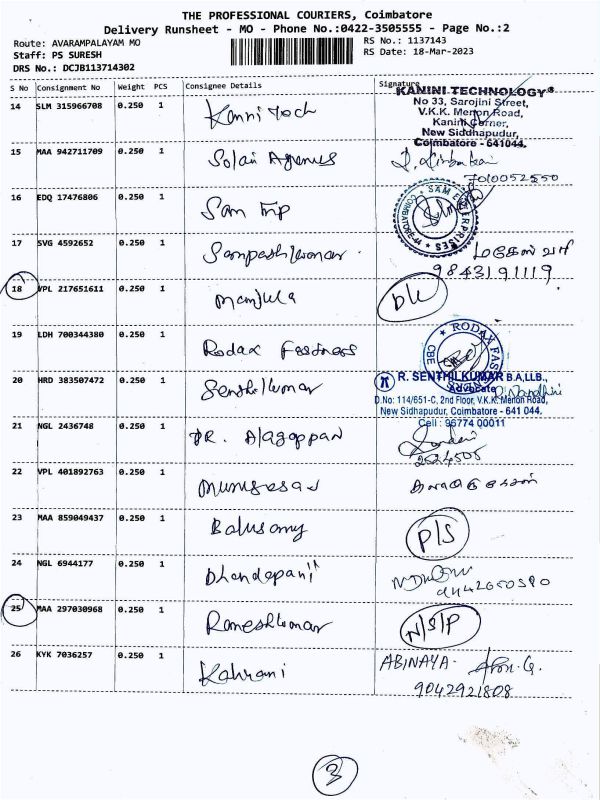 THE PROFESSIONAL COURIERS, Coimbatore
Delivery Runsheet - MO - Phone No.:0422-3505555 - Page No.:2
Route: AVARAMPALAYAM MO
RS No.: 1137143
Staff: PS SURESH
RS Date: 18-Mar-2023
DRS No.: DCJB113714302
S No Consignment No Weight PCS Consignee Details Signature
14 SLM 315966708 0.250 1 Kanni Tech
KANINI TECHNOLOGY®
No 33, Sarojini Street,
V.K.K. Menon Road,
Kanini Corner,
New Siddhapudur,
Coimbatore - 641044.
15 MAA 942711709 0.250 1 Solai Agencies
7010052550
16 EDQ 17476806 0.250 1 Sam Enp
SAM ENTERPRISES
COIMBATORE
17 SVG 4592652 0.250 1 Sampathkumar
மகேஸ்வரி
9843191119
18 VPL 217651611 0.250 1 Manjula
D/L
19 LDH 700344380 0.250 1 Rodax Fastness
RODAX FAS
CBE
20 HRD 383507472 0.250 1 Senthilkumar
R. SENTHILKUMAR B.A,LLB.,
Advocate
D.No: 114/651-C, 2nd Floor, V.K.K. Menon Road,
New Sidhapudur, Coimbatore - 641 044.
Cell : 96774 00011
R. Nandhini
21 NGL 2436748 0.250 1 DR. Alagappan
2524505
22 VPL 401892763 0.250 1 Murugesan
23 MAA 859049437 0.250 1 Balusamy
P/S
24 NGL 6944177 0.250 1 Dhandapani
9442650590
25 MAA 297030968 0.250 1 Rameshkumar
N/S/P
26 KYK 7036257 0.250 1 Kahrani
ABINAYA.
9042921808
3